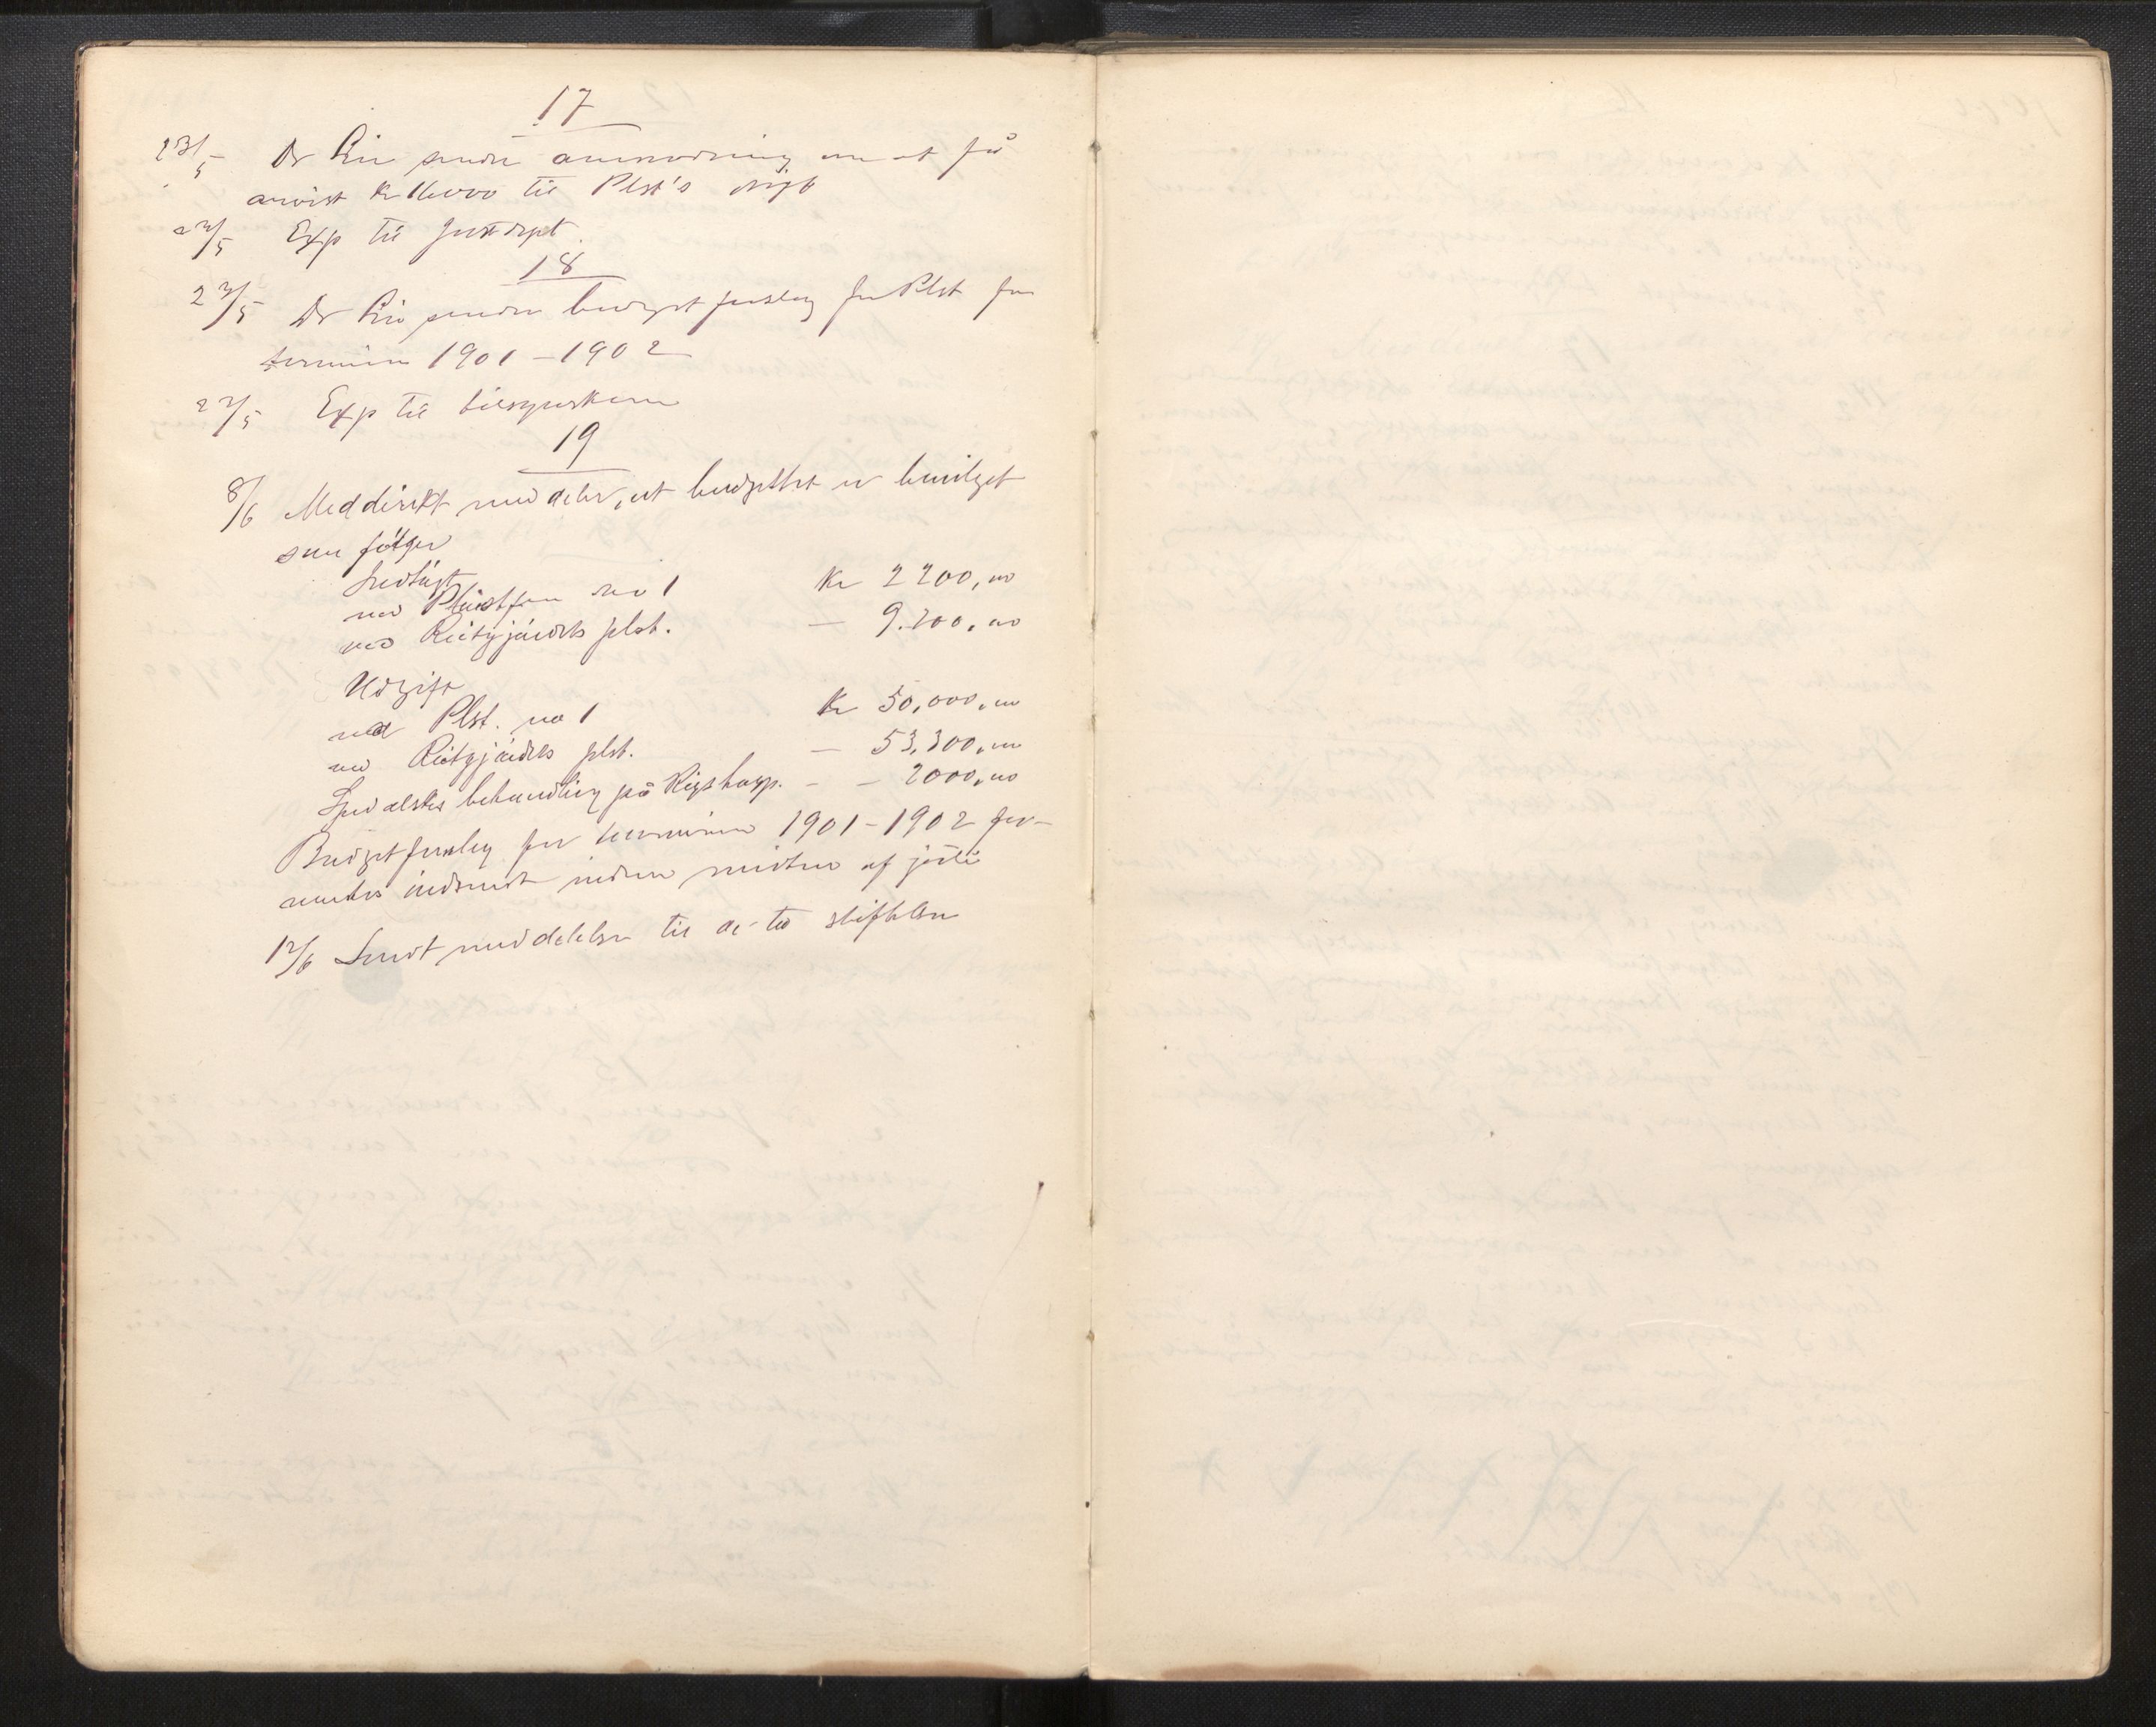 17
23/5 Dr Lie sender anmodning om at få
anvist kr 16000 til Plst's drift
23/5 Exp til Justdept.
18
23/5 Dr Lie sender budgetforslag for Plst for
terminen 1901-1902
27/5 Exp til tilsynskom
19
8/6 Meddirekt meddeler, at budgettet er bevilget
som følger
Indtægt
ved Pleiestften no 1 Kr 2200,00
ved Reitgjærdets plst. — 9.200,00
Udgift
ved Plst. no 1 Kr 50,000,00
ved Reitgjærdets plst. — 53,300,00
Spedalskes behandling på Rigshosp. - — 2000,00
Budgetforslag for terminen 1901-1902 for-
ventes indsendt inden midten af juli
12/6 Sendt meddelelse til de to stiftelser